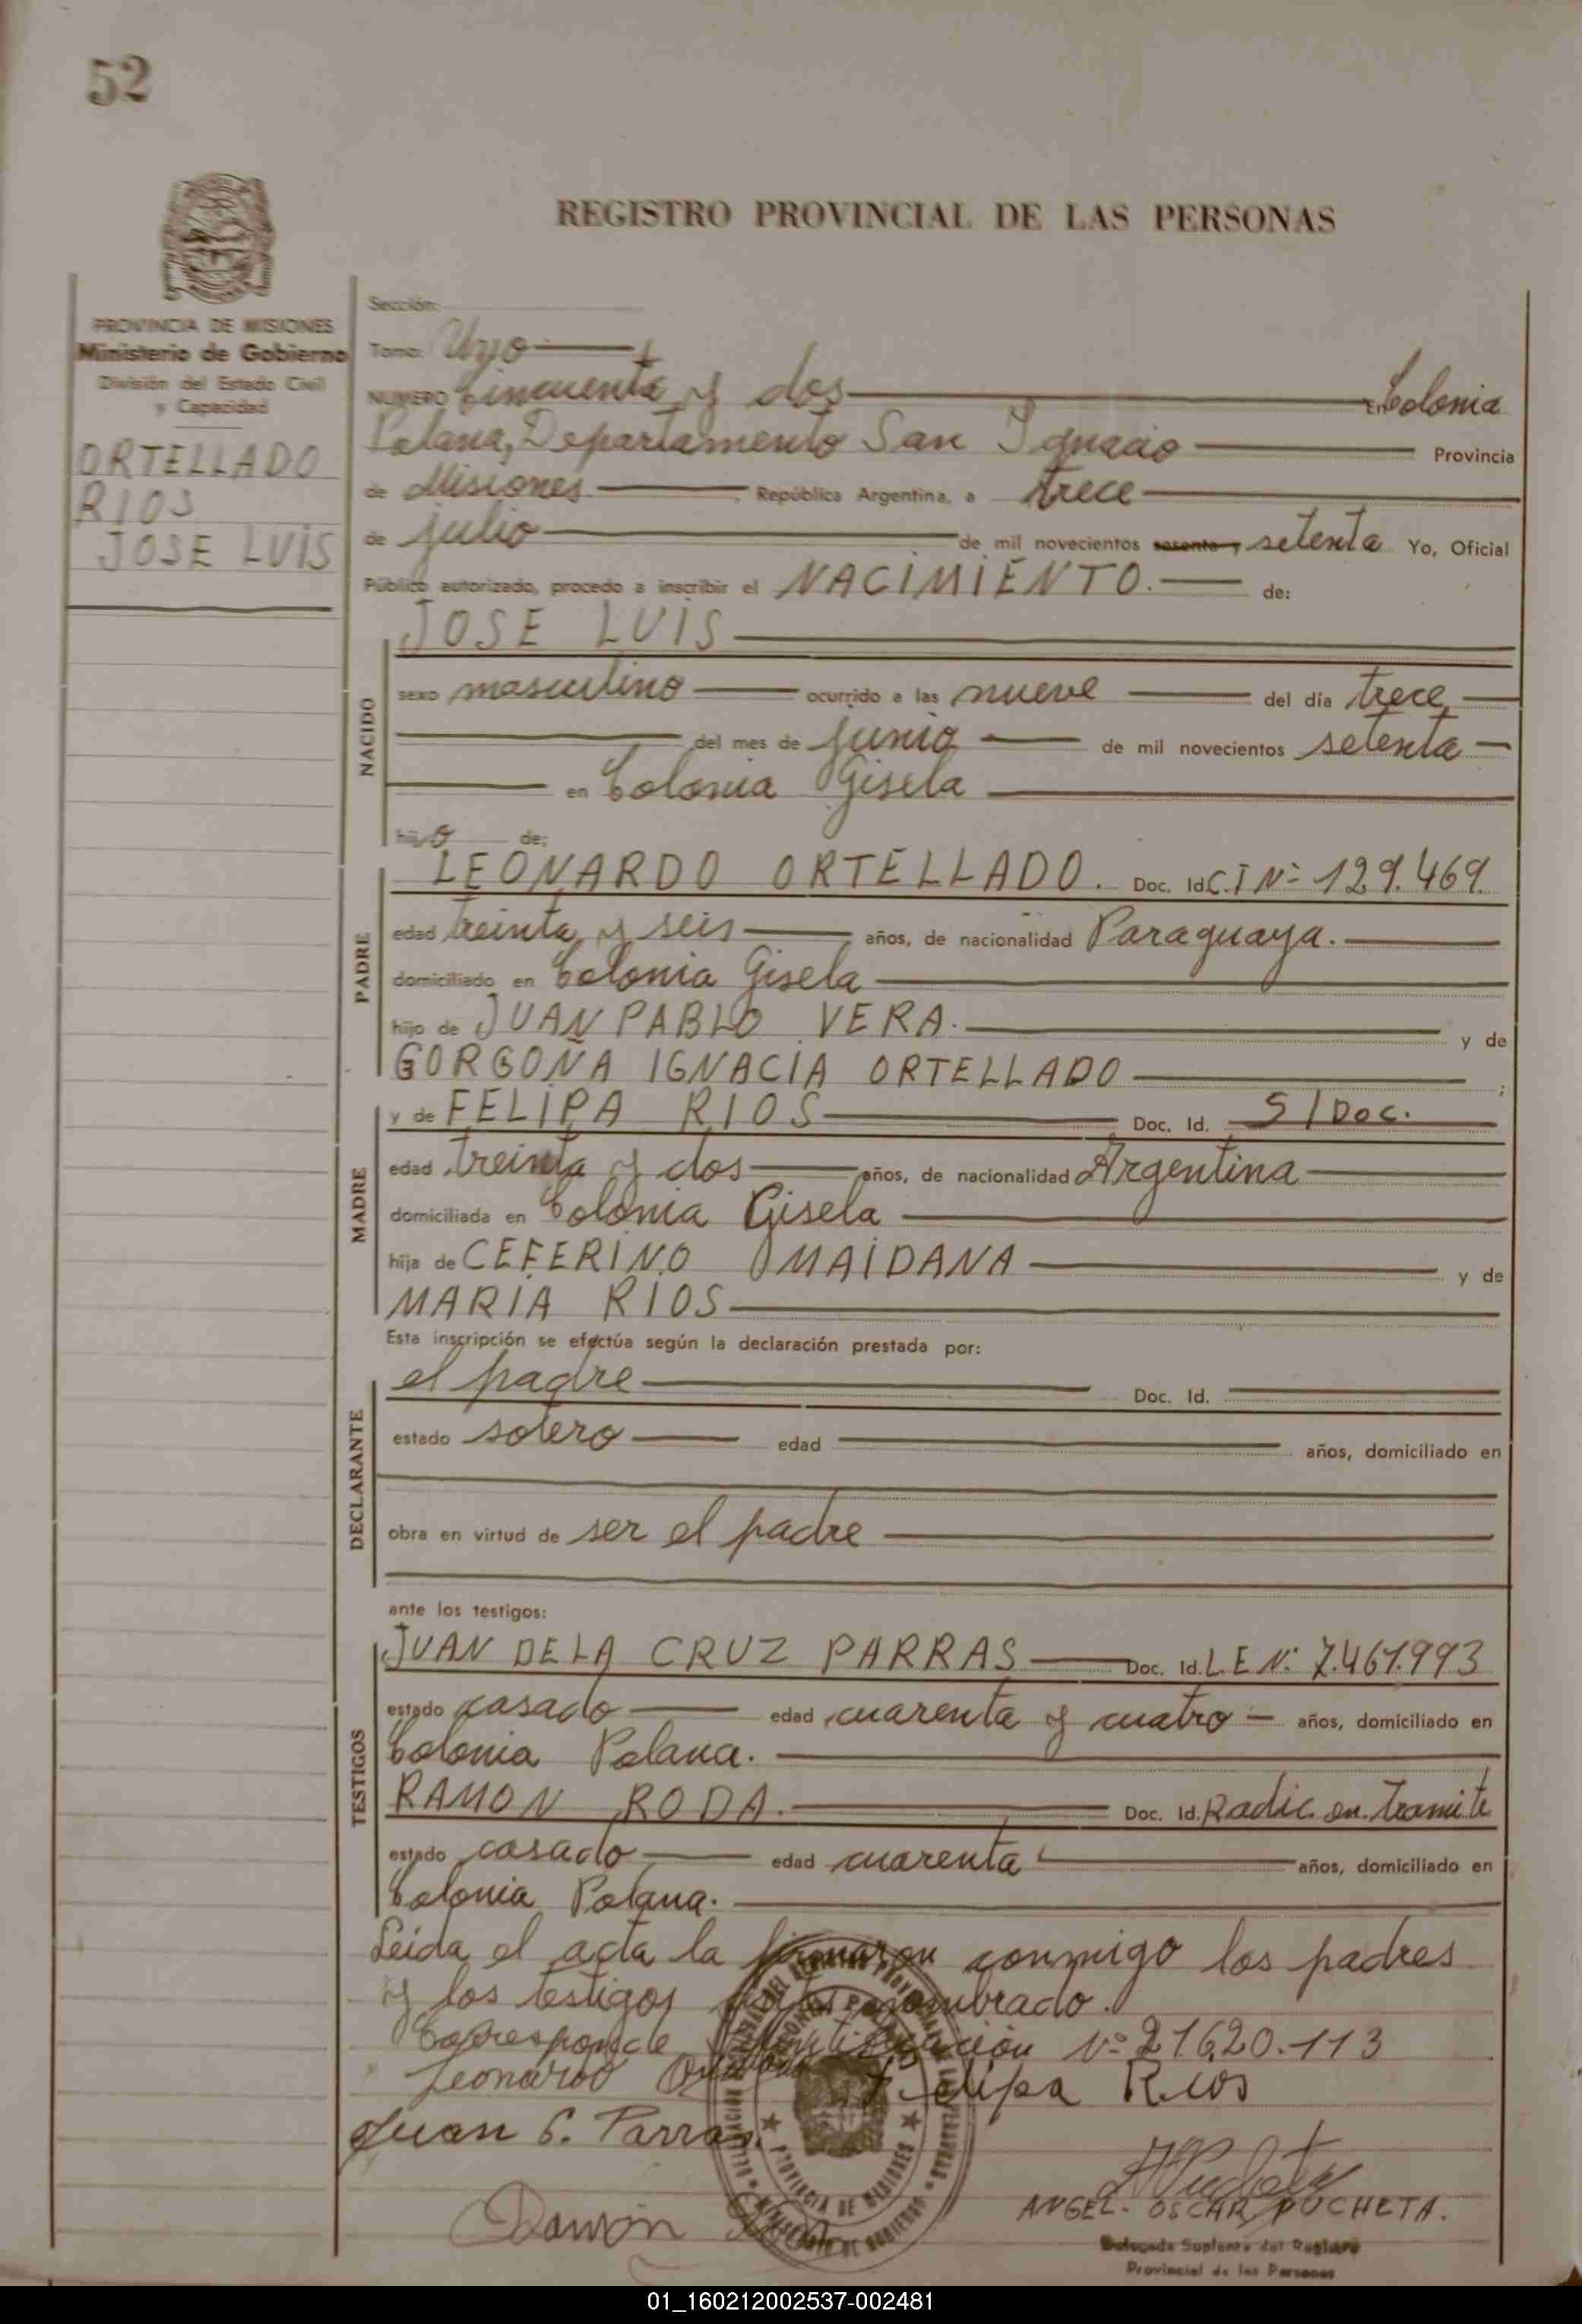 52
REGISTRO PROVINCIAL DE LAS PERSONAS
PROVINCIA DE MISIONES
Ministerio de Gobierno
División del Estado Civil
y Capacidad
ORTELLADO
RIOS
JOSE LUIS
Sección:
Tomo: Uno
NUMERO Cincuenta y dos En Colonia
Polana, Departamento San Ignacio Provincia
de Misiones República Argentina, a trece
de julio de mil novecientos sesenta y setenta Yo, Oficial
Público autorizado, procedo a inscribir el NACIMIENTO. de:
JOSE LUIS
NACIDO
sexo masculino ocurrido a las nueve del día trece
del mes de junio de mil novecientos setenta
en Colonia Gisela
hijo de:
PADRE
LEONARDO ORTELLADO. Doc. Id. C.I Nº 129.469.
edad treinta y seis años, de nacionalidad Paraguaya.
domiciliado en Colonia Gisela
hijo de JUAN PABLO VERA. y de
GORGOÑA IGNACIA ORTELLADO ;
MADRE
y de FELIPA RIOS Doc. Id. S/Doc.
edad treinta y dos años, de nacionalidad Argentina
domiciliada en Colonia Gisela
hija de CEFERINO MAIDANA y de
MARIA RIOS
Esta inscripción se efectúa según la declaración prestada por:
DECLARANTE
el padre Doc. Id.
estado soltero edad años, domiciliado en
obra en virtud de ser el padre
ante los testigos:
TESTIGOS
JUAN DE LA CRUZ PARRAS Doc. Id. L.E Nº 7.461.993
estado casado edad cuarenta y cuatro años, domiciliado en
Colonia Polana.
RAMON RODA. Doc. Id. Radic. en tramite
estado casado edad cuarenta años, domiciliado en
Colonia Polana.
Leida el acta la firmaron conmigo los padres
y los testigos nombrado.
Corresponde Nº 21.620.113
Leonardo Felipa Rios
Juan C. Parras
Ramón
ANGEL OSCAR PUCHETA.
Delegado Suplente del Registro
Provincial de las Personas
PROVINCIA DE MISIONES
MINISTERIO DE GOBIERNO
01_160212002537-002481